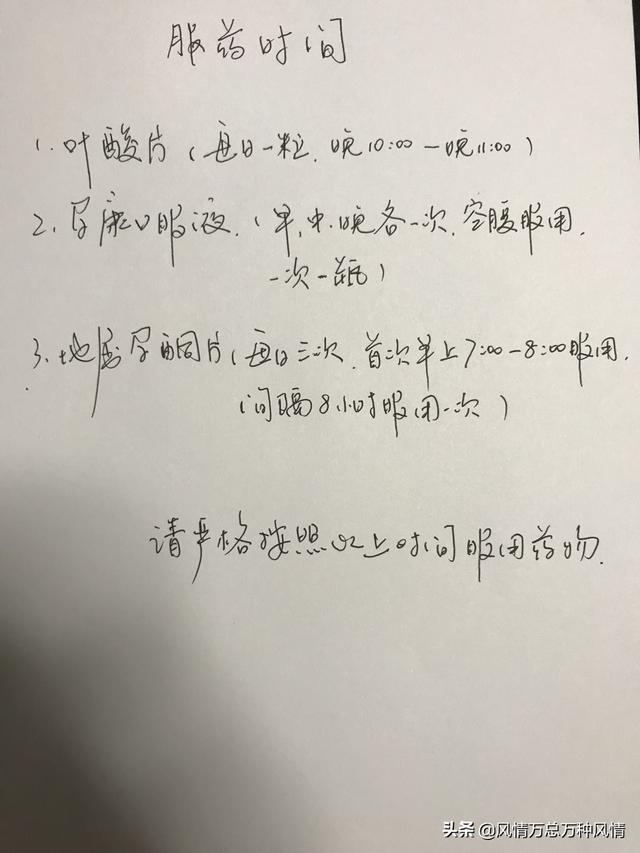 服药时间
1. 叶酸片(每日一粒, 晚10:00-晚11:00)
2. 孕康口服液. (早, 中, 晚各一次, 空腹服用,
一次一瓶)
3. 地屈孕酮片(每日三次, 首次早上7:00-8:00服用,
间隔8小时服用一次)
请严格按照以上时间服用药物.
头条 @风情万总万种风情